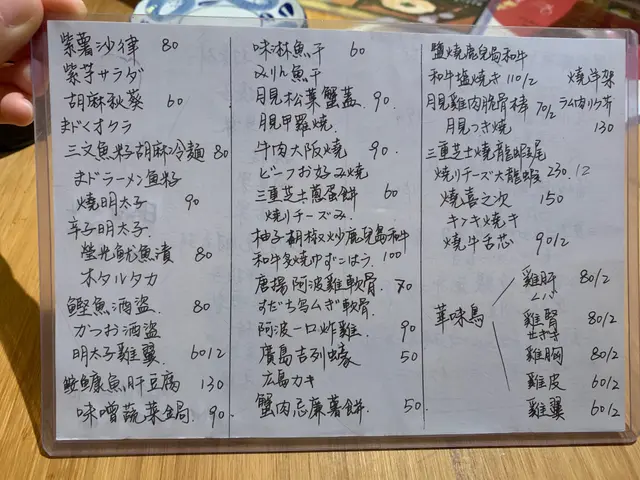 紫薯沙律 80
紫芋サラダ
胡麻秋葵 60
まどくオクラ
三文魚籽胡麻冷麵 80
まドラーメン魚籽
燒明太子 90
辛子明太子
螢光魷魚漬 80
ホタルタカ
鰹魚酒盜 80
かつお酒盜
明太子雞翼 60/2
鮟鱇魚肝豆腐 130
味噌蔬菜鍋 90
味淋魚干 60
みりん魚干
月見松葉蟹蓋 90
月見甲羅燒
牛肉大阪燒 90
ビーフお好み燒
三重芝士蔥蛋餅 60
燒りチーズみ
柚子胡椒炒鹿兒島和牛
和牛炙燒ゆずこはう 100
唐揚阿波雞軟骨 70
軟骨
阿波一口炸雞 90
廣島吉列蠔 50
広島カキ
蟹肉忌廉薯餅 50
鹽燒鹿兒島和牛
和牛塩燒き 110/2
月見雞肉脆骨棒 70/2
月見つき燒
三重芝士燒龍蝦尾
燒りチーズ大龍蝦 230.12
燒喜之次 150
キンキ燒き
燒牛舌芯 90/2
燒羊架
ラム肉
130
華味鳥
雞肝 80/2
レバ
雞腎 80/2
雞胸 80/2
雞皮 60/2
雞翼 60/2